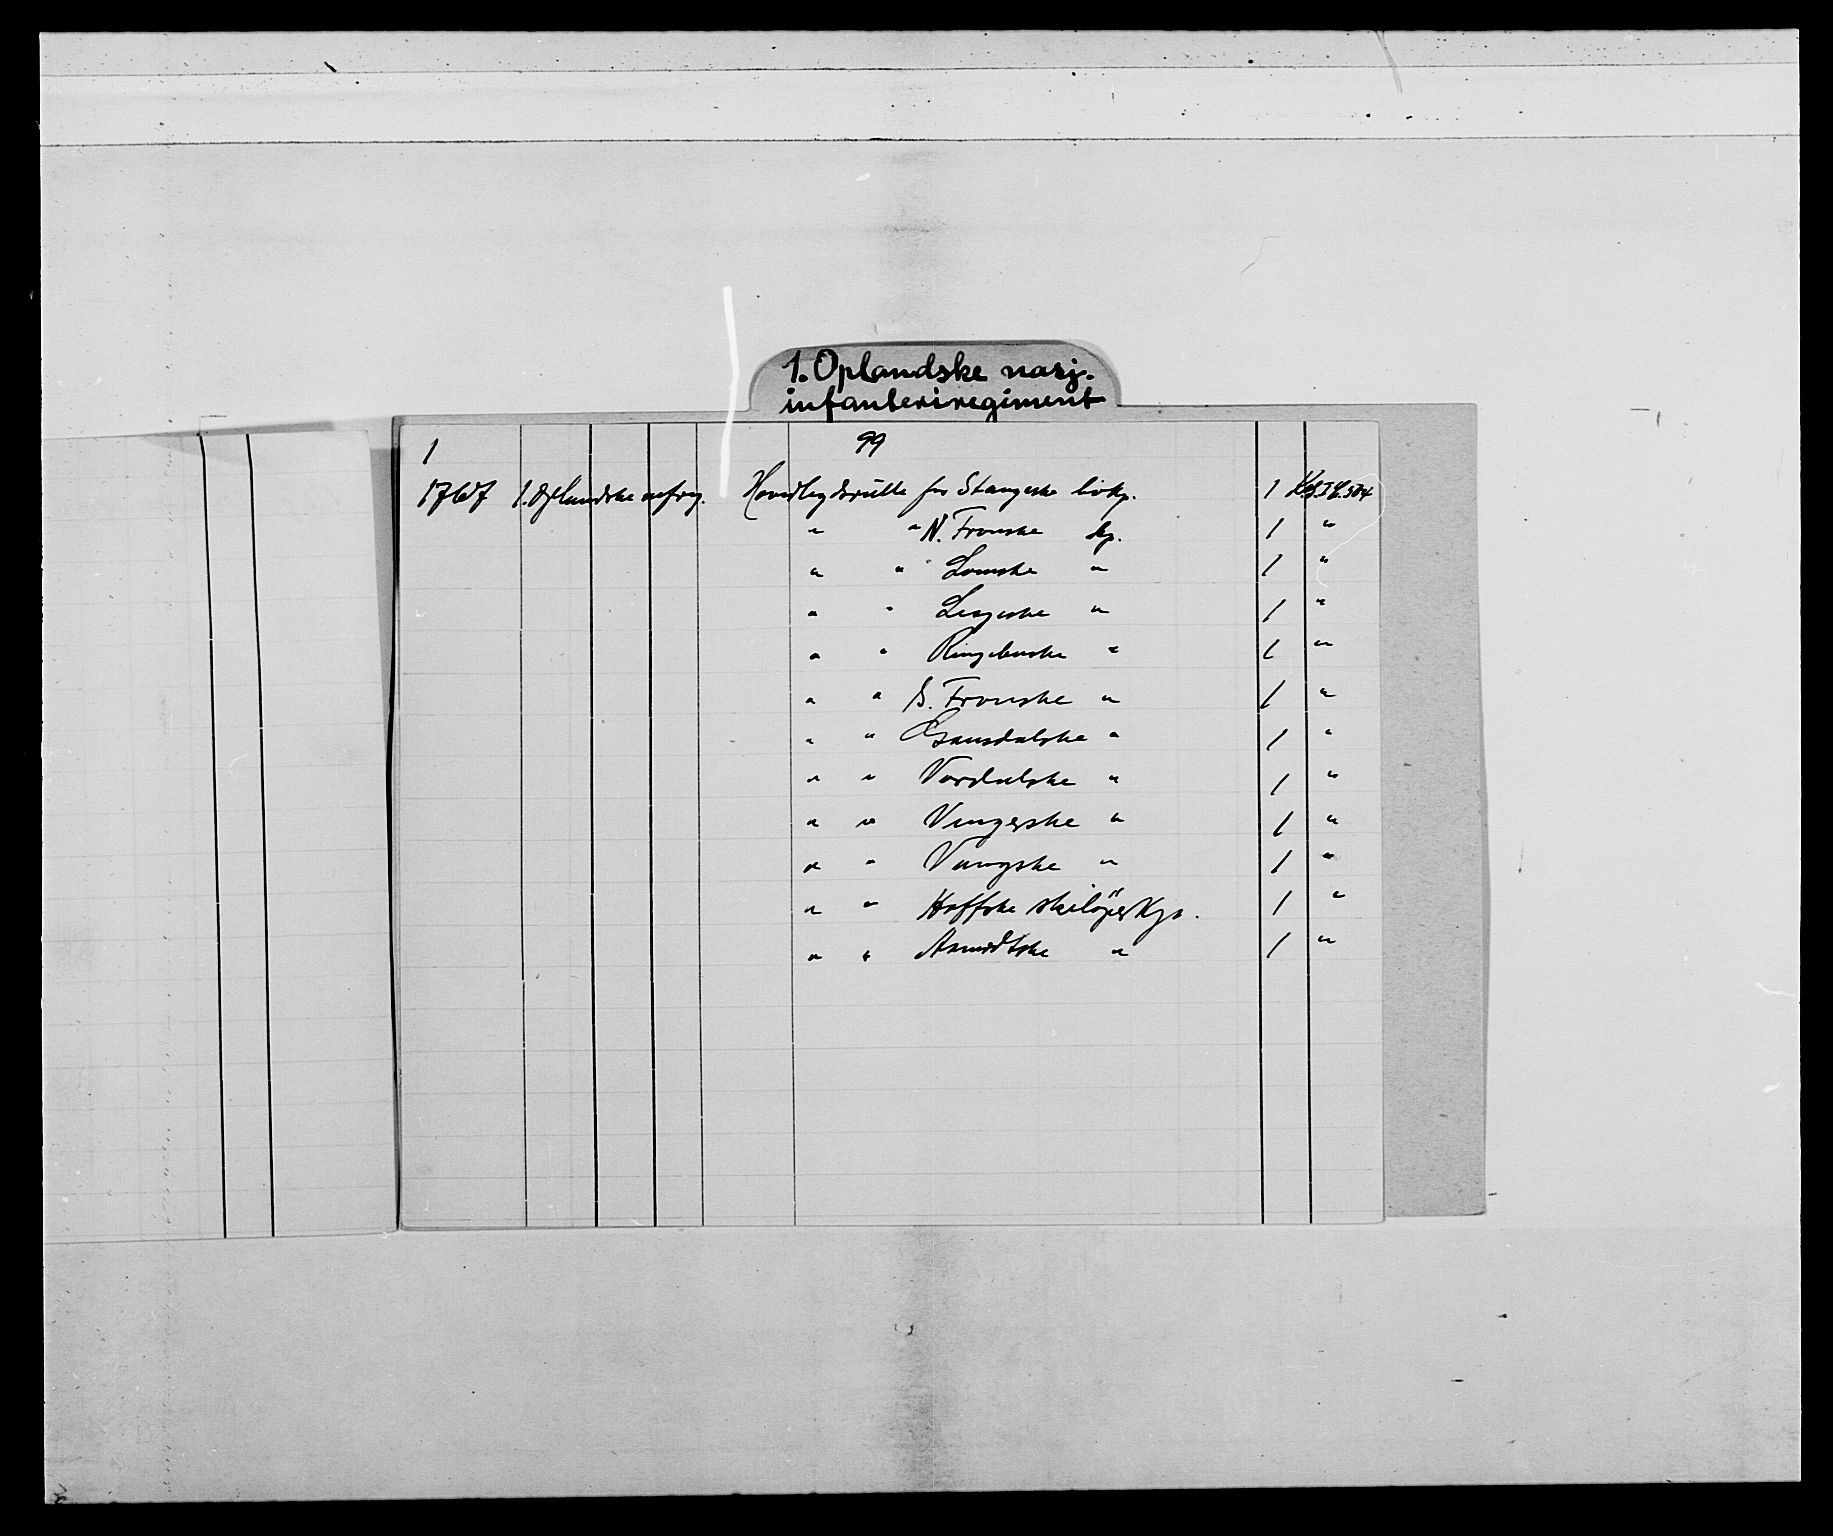 1. Oplandske nasj.
infanteriregiment
1 99
1767 1. Oplandske infrg. Hovedlegdsrulle for Stangeske livkp. 1
" " N. Fronske kp. 1 "
" " Lomske " 1 "
" " Lesjeske " 1 "
" " Ringebuske " 1 "
" " S. Fronske " 1 "
" " Gausdalske " 1 "
" " Vardalske " 1 "
" " Vingerske " 1 "
" " Vangske " 1 "
" " Hoffske skilöperkp. 1 "
" " Aamodtske " 1 "